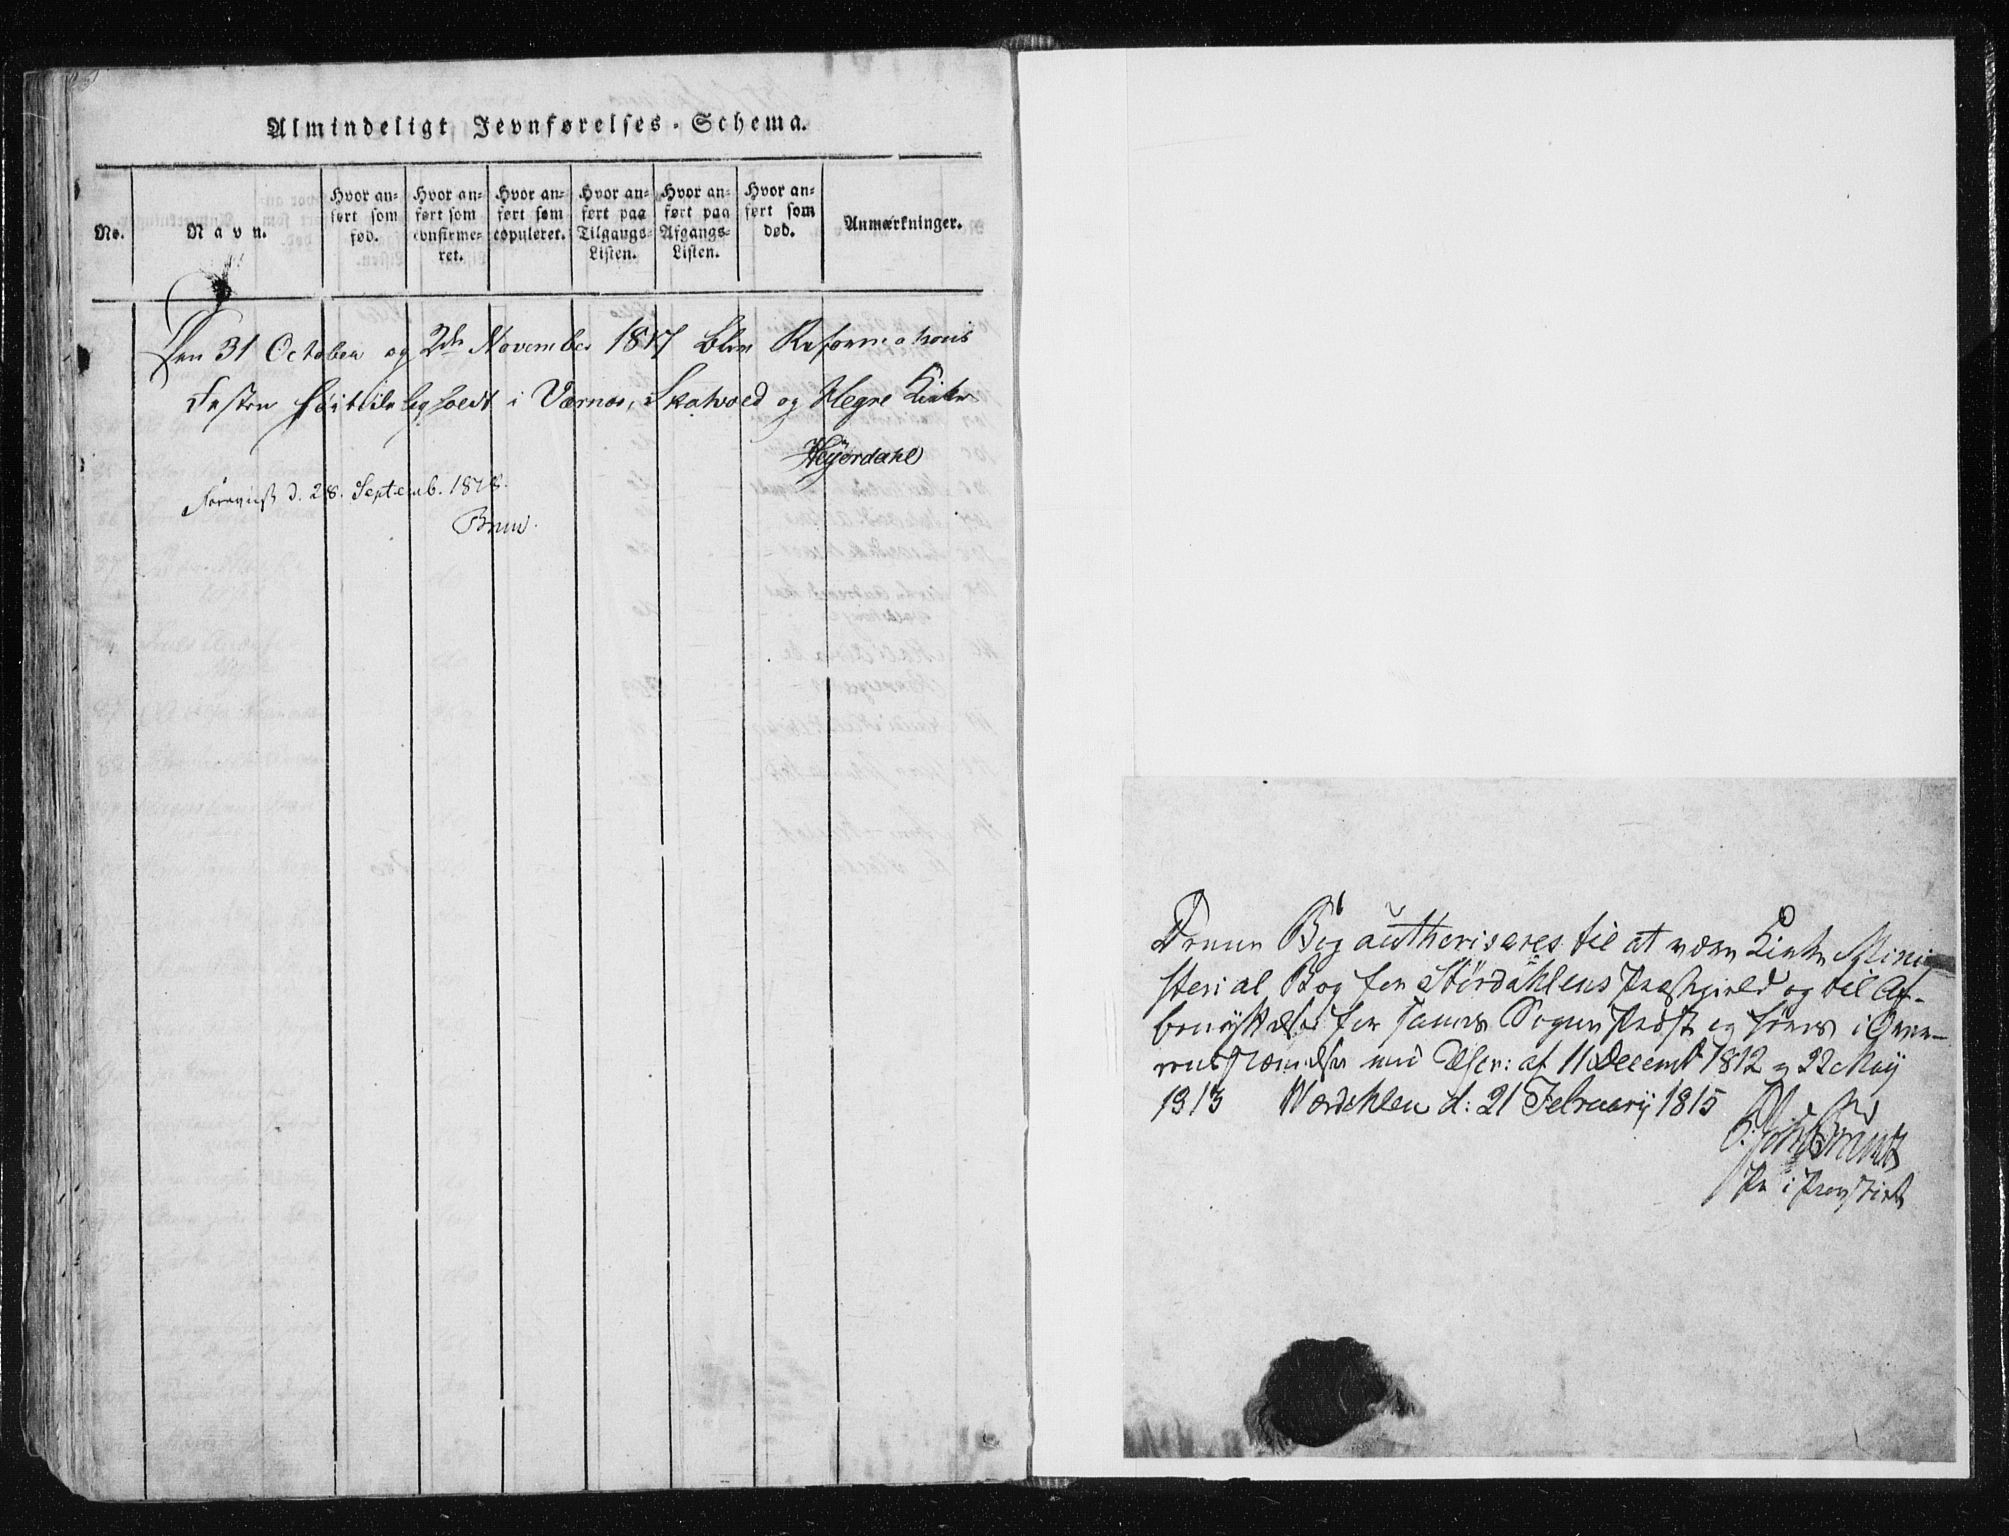 Almindeligt Jevnførelses-Schema.
No.
Navn.
Hvor anført som fød.
Hvor anført som confirmeret.
Hvor anført som copuleret.
Hvor anført paa Tilgangs-Listen.
Hvor anført paa Afgangs-Listen.
Hvor anført som død.
Anmærkninger.
Den 31 October og 2den November 1817 blev Reformations
Festen høitidelig holdt i Værnæs, Skatvold og Hegre Kirker
Heyerdahl
Foreviist d. 28. Septemb. 1818.
Brun.
Denne Bog authoriseres til at være Kirke Mini
sterial Bog for Størdahlens Præstegield og til Af-
benyttelse for sammes Sogne Præst og føres i Overe-
eensstemmelse med Rescr: af 11 Decemb 1812 og 22 May
1813 Værdahlen d: 21 February 1815